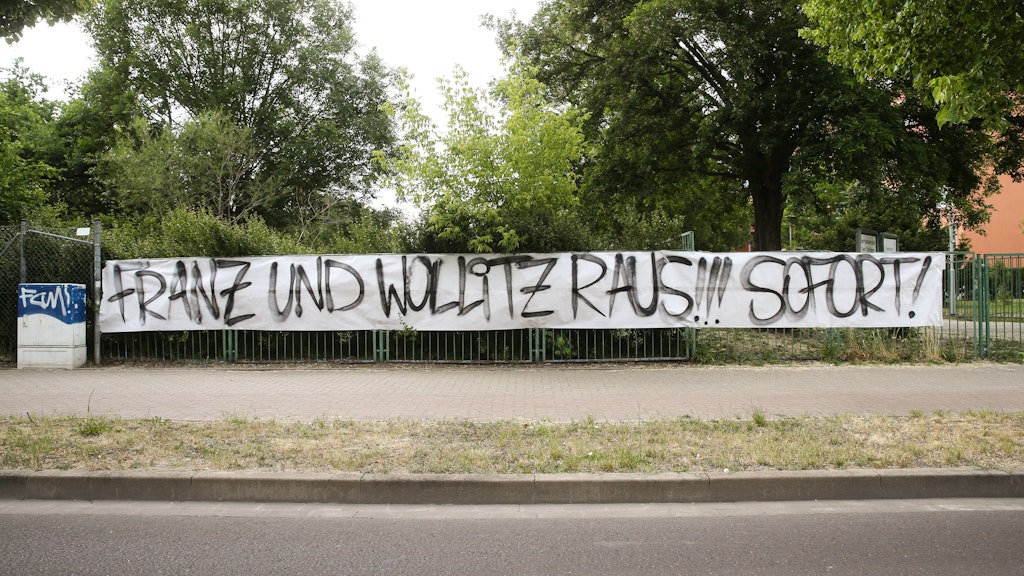 FCM!
FRANZ UND WOLLiTZ RAUS!!! SOFORT!